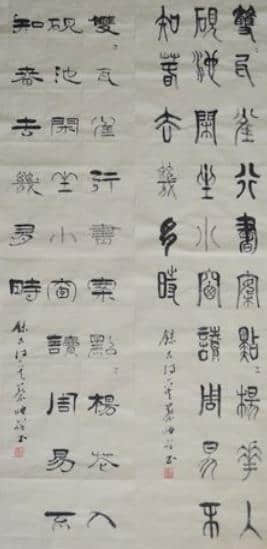 雙〻瓦雀行書案點〻楊華入
硯池閑坐小窗讀周易不
知春去幾多時
雙〻瓦雀行書案點〻楊花入
硯池閑坐小窗讀周易不
知春去幾多時